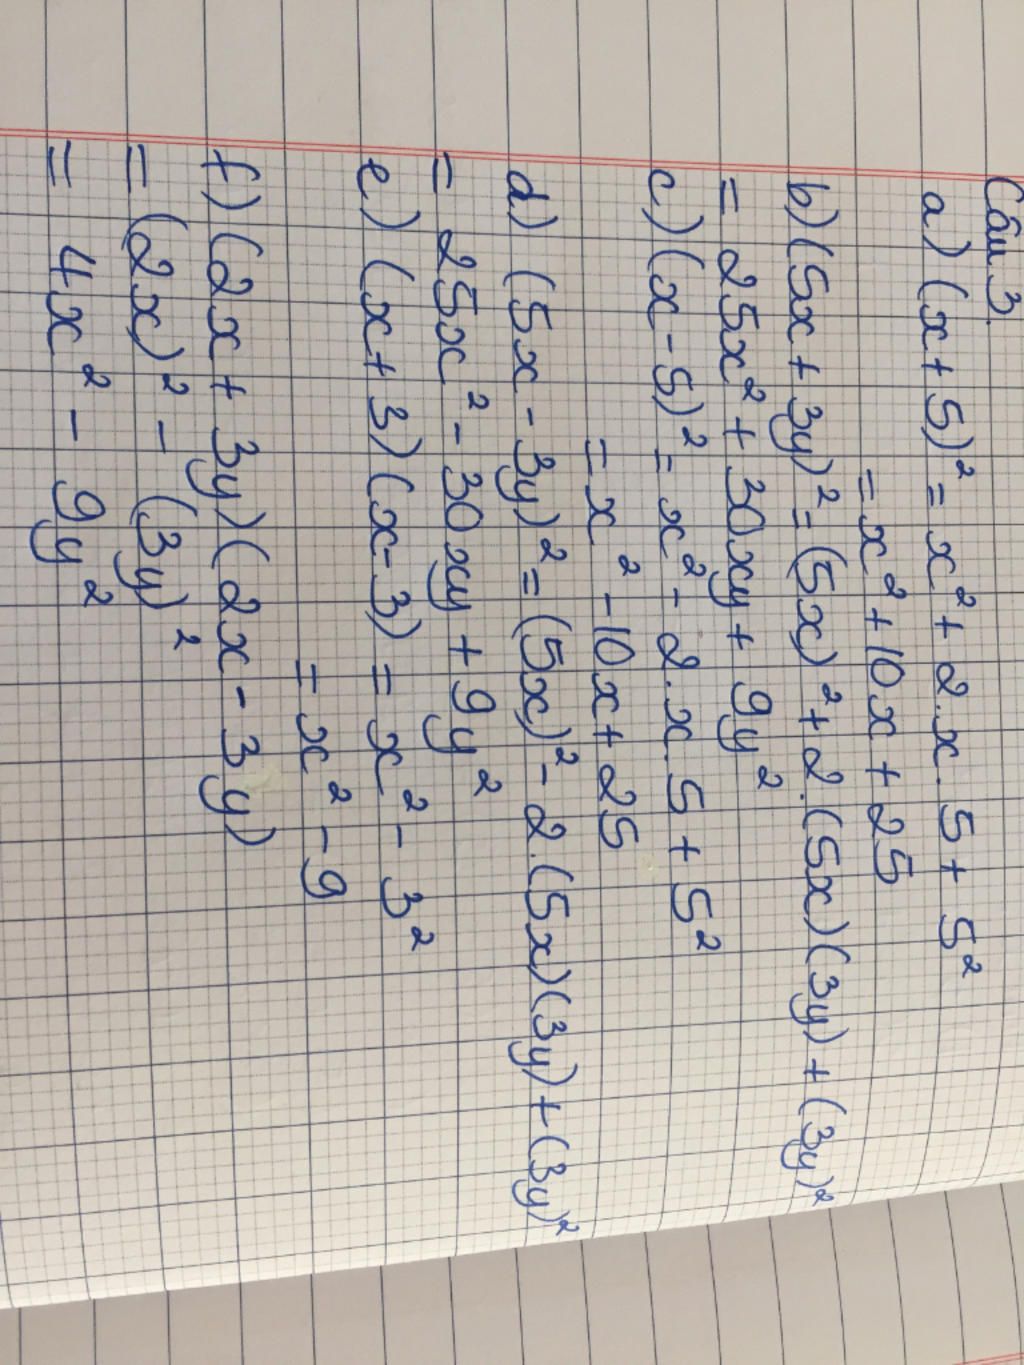 Câu 3.
a) (x + 5)² = x² + 2.x.5 + 5²
= x² + 10x + 25
b) (5x + 3y)² = (5x)² + 2.(5x)(3y) + (3y)²
= 25x² + 30xy + 9y²
c) (x - 5)² = x² - 2.x.5 + 5²
= x² - 10x + 25
d) (5x - 3y)² = (5x)² - 2.(5x)(3y) + (3y)²
= 25x² - 30xy + 9y²
e) (x + 3)(x - 3) = x² - 3²
= x² - 9
f) (2x + 3y)(2x - 3y)
= (2x)² - (3y)²
= 4x² - 9y²